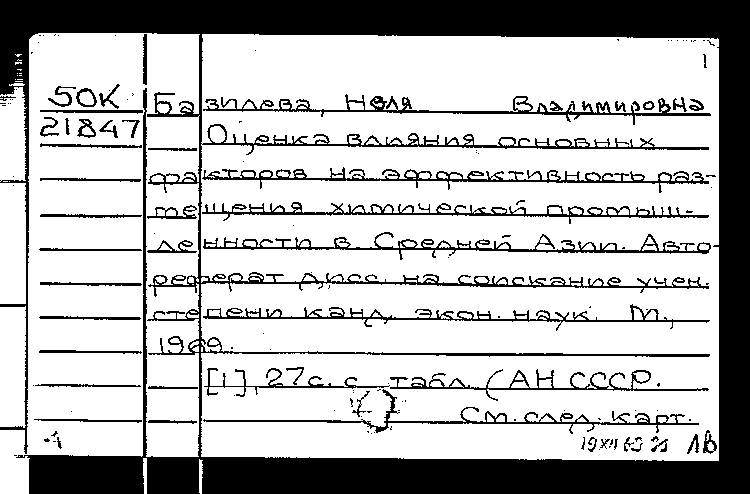 1
50К Базилева, Неля Владимировна
21847 Оценка влияния основных
факторов на эффективность раз-
мещения химической промыш-
ленности в Средней Азии. Авто-
реферат дисс. на соискание учен.
степени канд. экон. наук. М.,
1969.
[1], 27с. с табл. (АН СССР.
См. след. карт.
-1 19 XII 69 1в